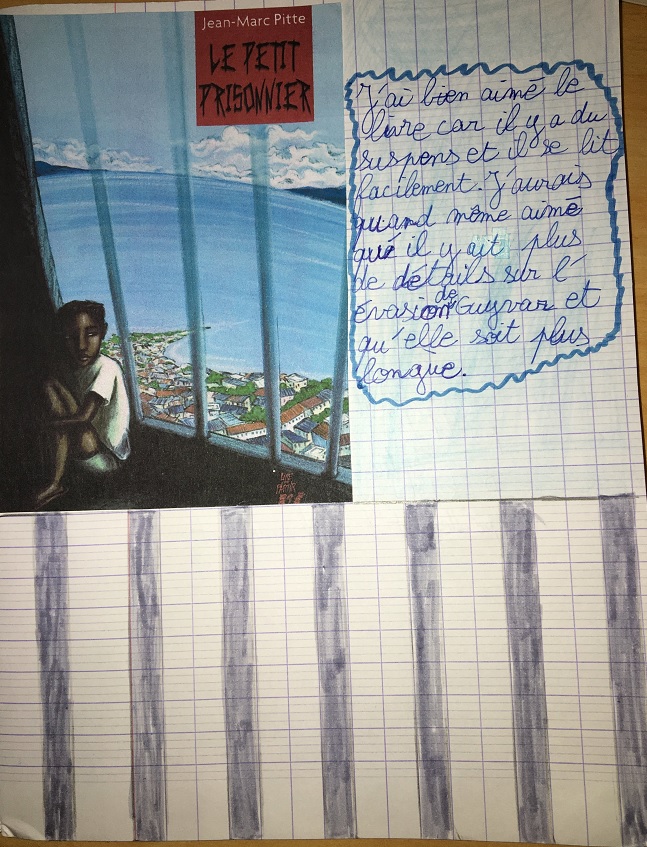 Jean-Marc Pitte
LE PETIT
PRISONNIER
J'ai bien aimé le
livre car il y a du
suspens et il se lit
facilement. J'aurais
quand même aimé
que il y ait plus
de détails sur l'
évasion de Guyvar et
qu'elle soit plus
longue.